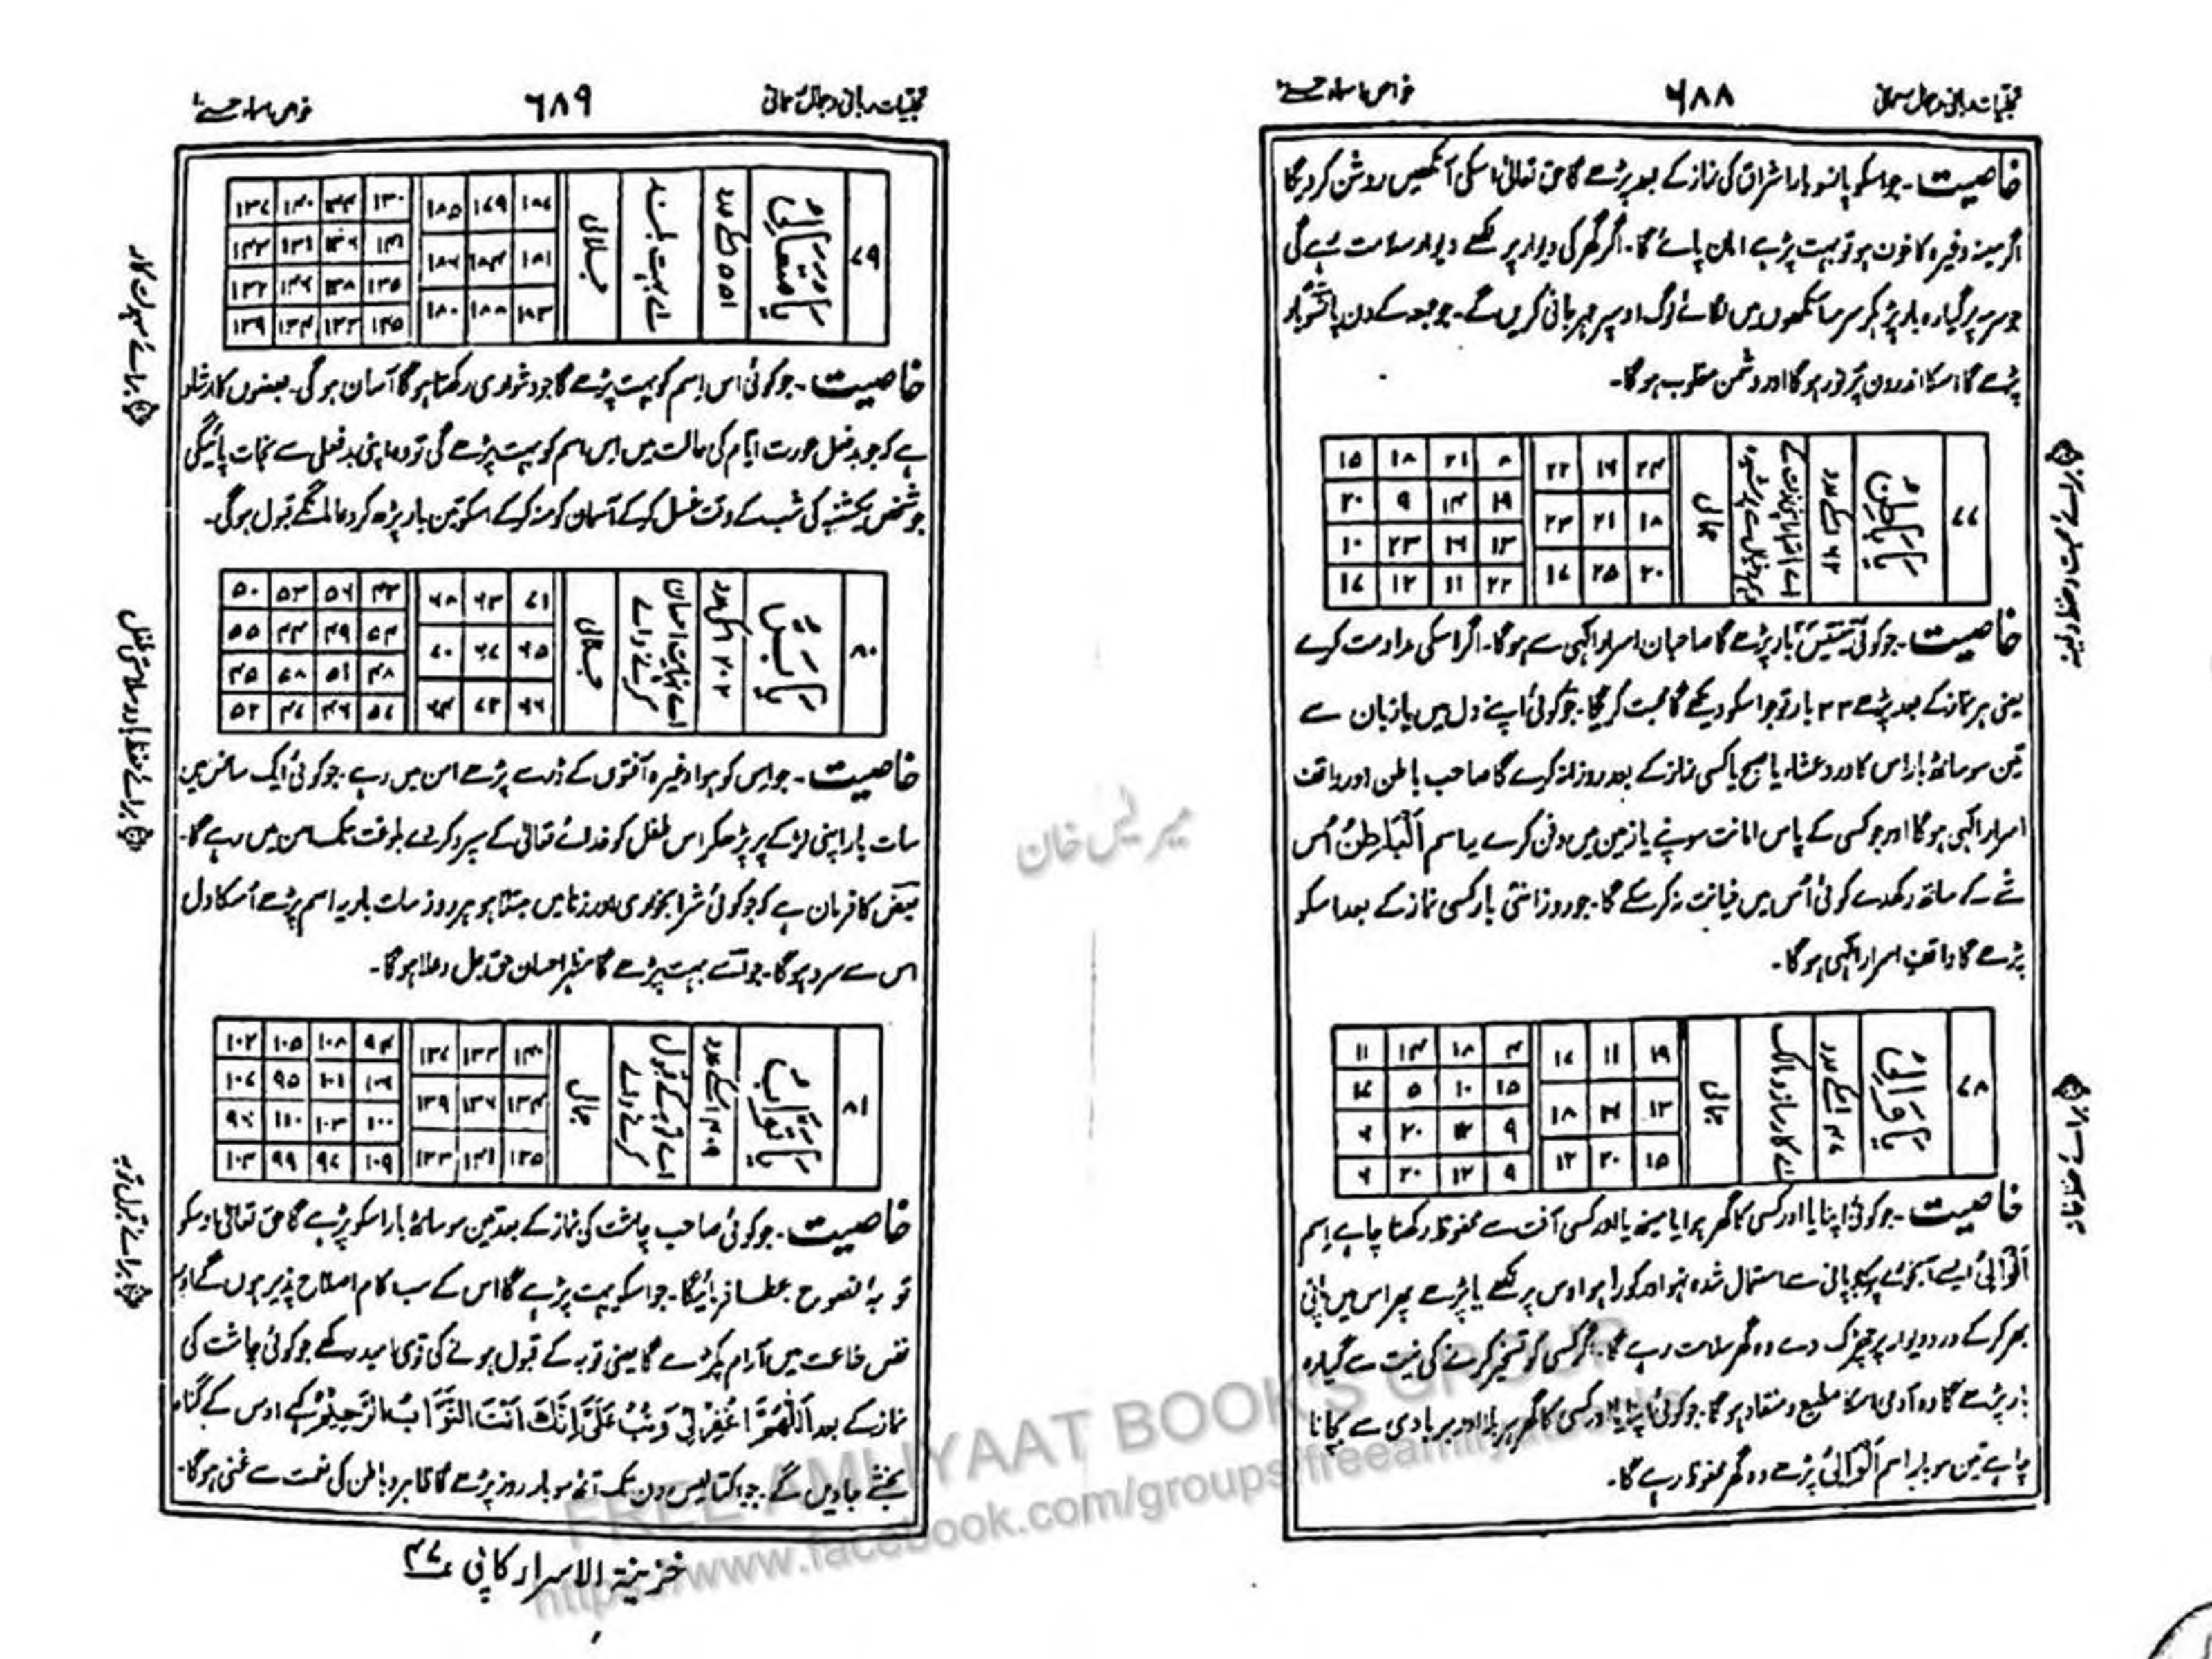 تجلیات ربانی و جمال سبحانی ۶۸۸ خواص اسماء حسنےٰ
خاصیت۔ جو اسکو پانسو بار اشراق کی نماز کے بعد پڑھے گا حق تعالیٰ اسکی آنکھیں روشن کردیگا
اگر مینہ وغیرہ کا خوف ہو تو بہت پڑھے امان پائے گا۔ اگر گھر کی دیوار پر لکھے دیوار سلامت رہے گی
جو سرمہ پر گیارہ بار پڑہکر سرمہ آنکھوں میں لگائے لوگ اوسپر مہربانی کریں گے۔ جو جمعہ کے دن پانسو بار
پڑھے گا اسکا اندرون پُر نور ہوگا اور دشمن مغلوب ہوگا۔
۷۷
یَا بَاطِنُ
۶۲ اسکے عدد
جمالی
۲۴ ۱۶ ۲۲
۱۸ ۲۱ ۲۳
۲۰ ۲۵ ۱۷
۸ ۲۱ ۱۸ ۱۵
۱۹ ۱۴ ۹ ۲۰
۱۳ ۱۶ ۲۳ ۱۰
۲۲ ۱۱ ۱۲ ۱۷
خاصیت۔ جو کوئی تینتیس بار پڑھے گا صاحبان اسرار الٰہی سے ہوگا۔ اگر اسکی مداومت کرے
یعنی ہر نماز کے بعد پڑھے ۳۳ بار تو جو اسکو دیکھے گا محبت کریگا۔ جو کوئی اپنے دل میں یا زبان سے
تین سو ساٹھ بار اس کا ورد عشاء یا صبح یا کسی نماز کے بعد روزانہ کرے گا صاحب باطن اور واقف
اسرار الٰہی ہوگا اور جو کسی کے پاس امانت سونپے یا زمین میں دفن کرے یہ اسم اَلْبَاطِنُ اُس
شے کے ساتھ رکھدے کوئی اُس میں خیانت نہ کر سکے گا۔ جو روز انتی بار کسی نماز کے بعد اسکو
پڑھے گا واقفِ اسرار الٰہی ہوگا۔
۷۸
یَا وَالِیُ
۴۷ اسکے عدد
اے کارساز و مالک
جمالی
۱۹ ۱۱ ۱۷
۱۳ ۱۶ ۱۸
۱۵ ۲۰ ۱۲
۴ ۱۸ ۱۴ ۱۱
۱۵ ۱۰ ۵
۹ ۱۲ ۲۰ ۶
۹ ۱۲ ۲۰ ۶
خاصیت۔ جو کوئی اپنا یا اور کسی کا گھر ہوا یا مینہ یا اور کسی آفت سے محفوظ رکھنا چاہے اسم
اَلْوَالِیُ ایسے آبخورے پر کہ جو پانی سے استعمال شدہ نہو اور کورا ہو اوس پر لکھے یا پڑھے پھر اس میں پانی
بھر کر کے در و دیوار پر چھڑک دے وہ گھر سلامت رہے گا۔ اگر کسی کو تسخیر کرنے کی نیت سے گیارہ
بار پڑھے گا وہ آدمی اسکا مطیع و منقاد ہوگا۔ جو کوئی اپنا یا اور کسی کا گھر ہر بلا اور بربادی سے بچانا
چاہے تین سو بار اسم اَلْوَالِیُ پڑھے وہ گھر محفوظ رہے گا۔
تجلیات ربانی و جمال سبحانی ۶۸۹ خواص اسماء حسنےٰ
۷۹
یَا مُتَعَالِیُ
۵۵۱ اسکے عدد
اے بہت بلند
جلالی
۱۸۷ ۱۷۹ ۱۸۵
۱۸۱ ۱۸۴ ۱۸۶
۱۸۳ ۱۸۸ ۱۸۰
۱۳۰ ۱۴۴ ۱۴۰ ۱۳۷
۱۴۱ ۱۳۶ ۱۳۱ ۱۴۳
۱۳۵ ۱۳۸ ۱۴۶ ۱۳۲
۱۴۵ ۱۳۳ ۱۳۴ ۱۳۹
خاصیت۔ جو کوئی اس اسم کو بہت پڑھے گا جو دشواری رکھتا ہوگا آسان ہوگی۔ بعضوں کا ارشاد
ہے کہ جو بدفعل عورت ایام کی حالت میں اس اسم کو بہت پڑھے گی تو وہ اپنی بدفعلی سے نجات پائیگی
جو شخص یکشنبہ کی شب کے وقت غسل کر کے آسمان کو منہ کر کے اسکو تین بار پڑھ کر دعا مانگے قبول ہوگی۔
برائے سہولت کار
۸۰
یَا بَرُّ
۲۰۲ اسکے عدد
اے نہایت احسان کرنے والے
جمالی
۷۱ ۶۳ ۶۸
۶۵ ۶۷ ۷۰
۶۶ ۷۲ ۶۴
۴۳ ۵۶ ۵۳ ۵۰
۵۴ ۴۹ ۴۴ ۵۵
۴۸ ۵۱ ۵۸ ۴۵
۵۷ ۴۶ ۴۷ ۵۲
خاصیت۔ جو اس کو ہوا وغیرہ آفتوں کے ڈر سے پڑھے امن میں رہے۔ جو کوئی ایک سانس میں
سات بار اپنی لڑکے پر پڑھکر اس طفل کو خدائے تعالیٰ کے سپرد کر دے بلوغت تک امن میں رہے گا۔
بعض کا فرمان ہے کہ جو کوئی شرابخوری اور زنا میں مبتلا ہو ہر روز سات بار یہ اسم پڑھے اُسکا دل
اس سے سرد ہوگا۔ جو اسے بہت پڑھے گا مظہر احسان حق جل و علا ہوگا۔
۸۱
یَا تَوَّابُ
۴۰۹ اسکے عدد
اے توبہ کے قبول کرنے والے
جمالی
۱۴۰ ۱۳۲ ۱۳۷
۱۳۴ ۱۳۶ ۱۳۹
۱۳۵ ۱۴۱ ۱۳۳
۹۴ ۱۰۸ ۱۰۵ ۱۰۲
۱۰۶ ۱۰۱ ۹۵ ۱۰۷
۱۰۰ ۱۰۳ ۱۱۰ ۹۶
۱۰۹ ۹۷ ۹۹ ۱۰۴
خاصیت۔ جو کوئی صاحب چاشت کی نماز کے بعد تین سو ساٹھ بار اسکو پڑھے گا حق تعالیٰ اوسکو
توبۃ نصوح عطا فرمائیگا۔ جو اسکو بہت پڑھے گا اس کے سب کام اصلاح پذیر ہوں گے اور
نفس طاعت میں آرام پکڑے گا یعنی توبہ کے قبول ہونے کی قوی امید رکھے جو کوئی چاشت کی
نماز کے بعد اَللّٰهُمَّ اغْفِرْ لِیْ وَتُبْ عَلَیَّ اِنَّكَ اَنْتَ التَّوَّابُ الرَّحِیْمُ کہے اوس کے گناہ
بخشے جاویں گے۔ جو اکتالیس دن تک آٹھ سو بار روز پڑھے گا ظاہر و باطن کی نعمت سے غنی ہوگا۔
برائے قبول توبہ
خزینۃ الاسرار کاپی ۴۷
FREE AMLIYAAT BOOKS GROUP
https://www.facebook.com/groups/freeamliyaatbooks